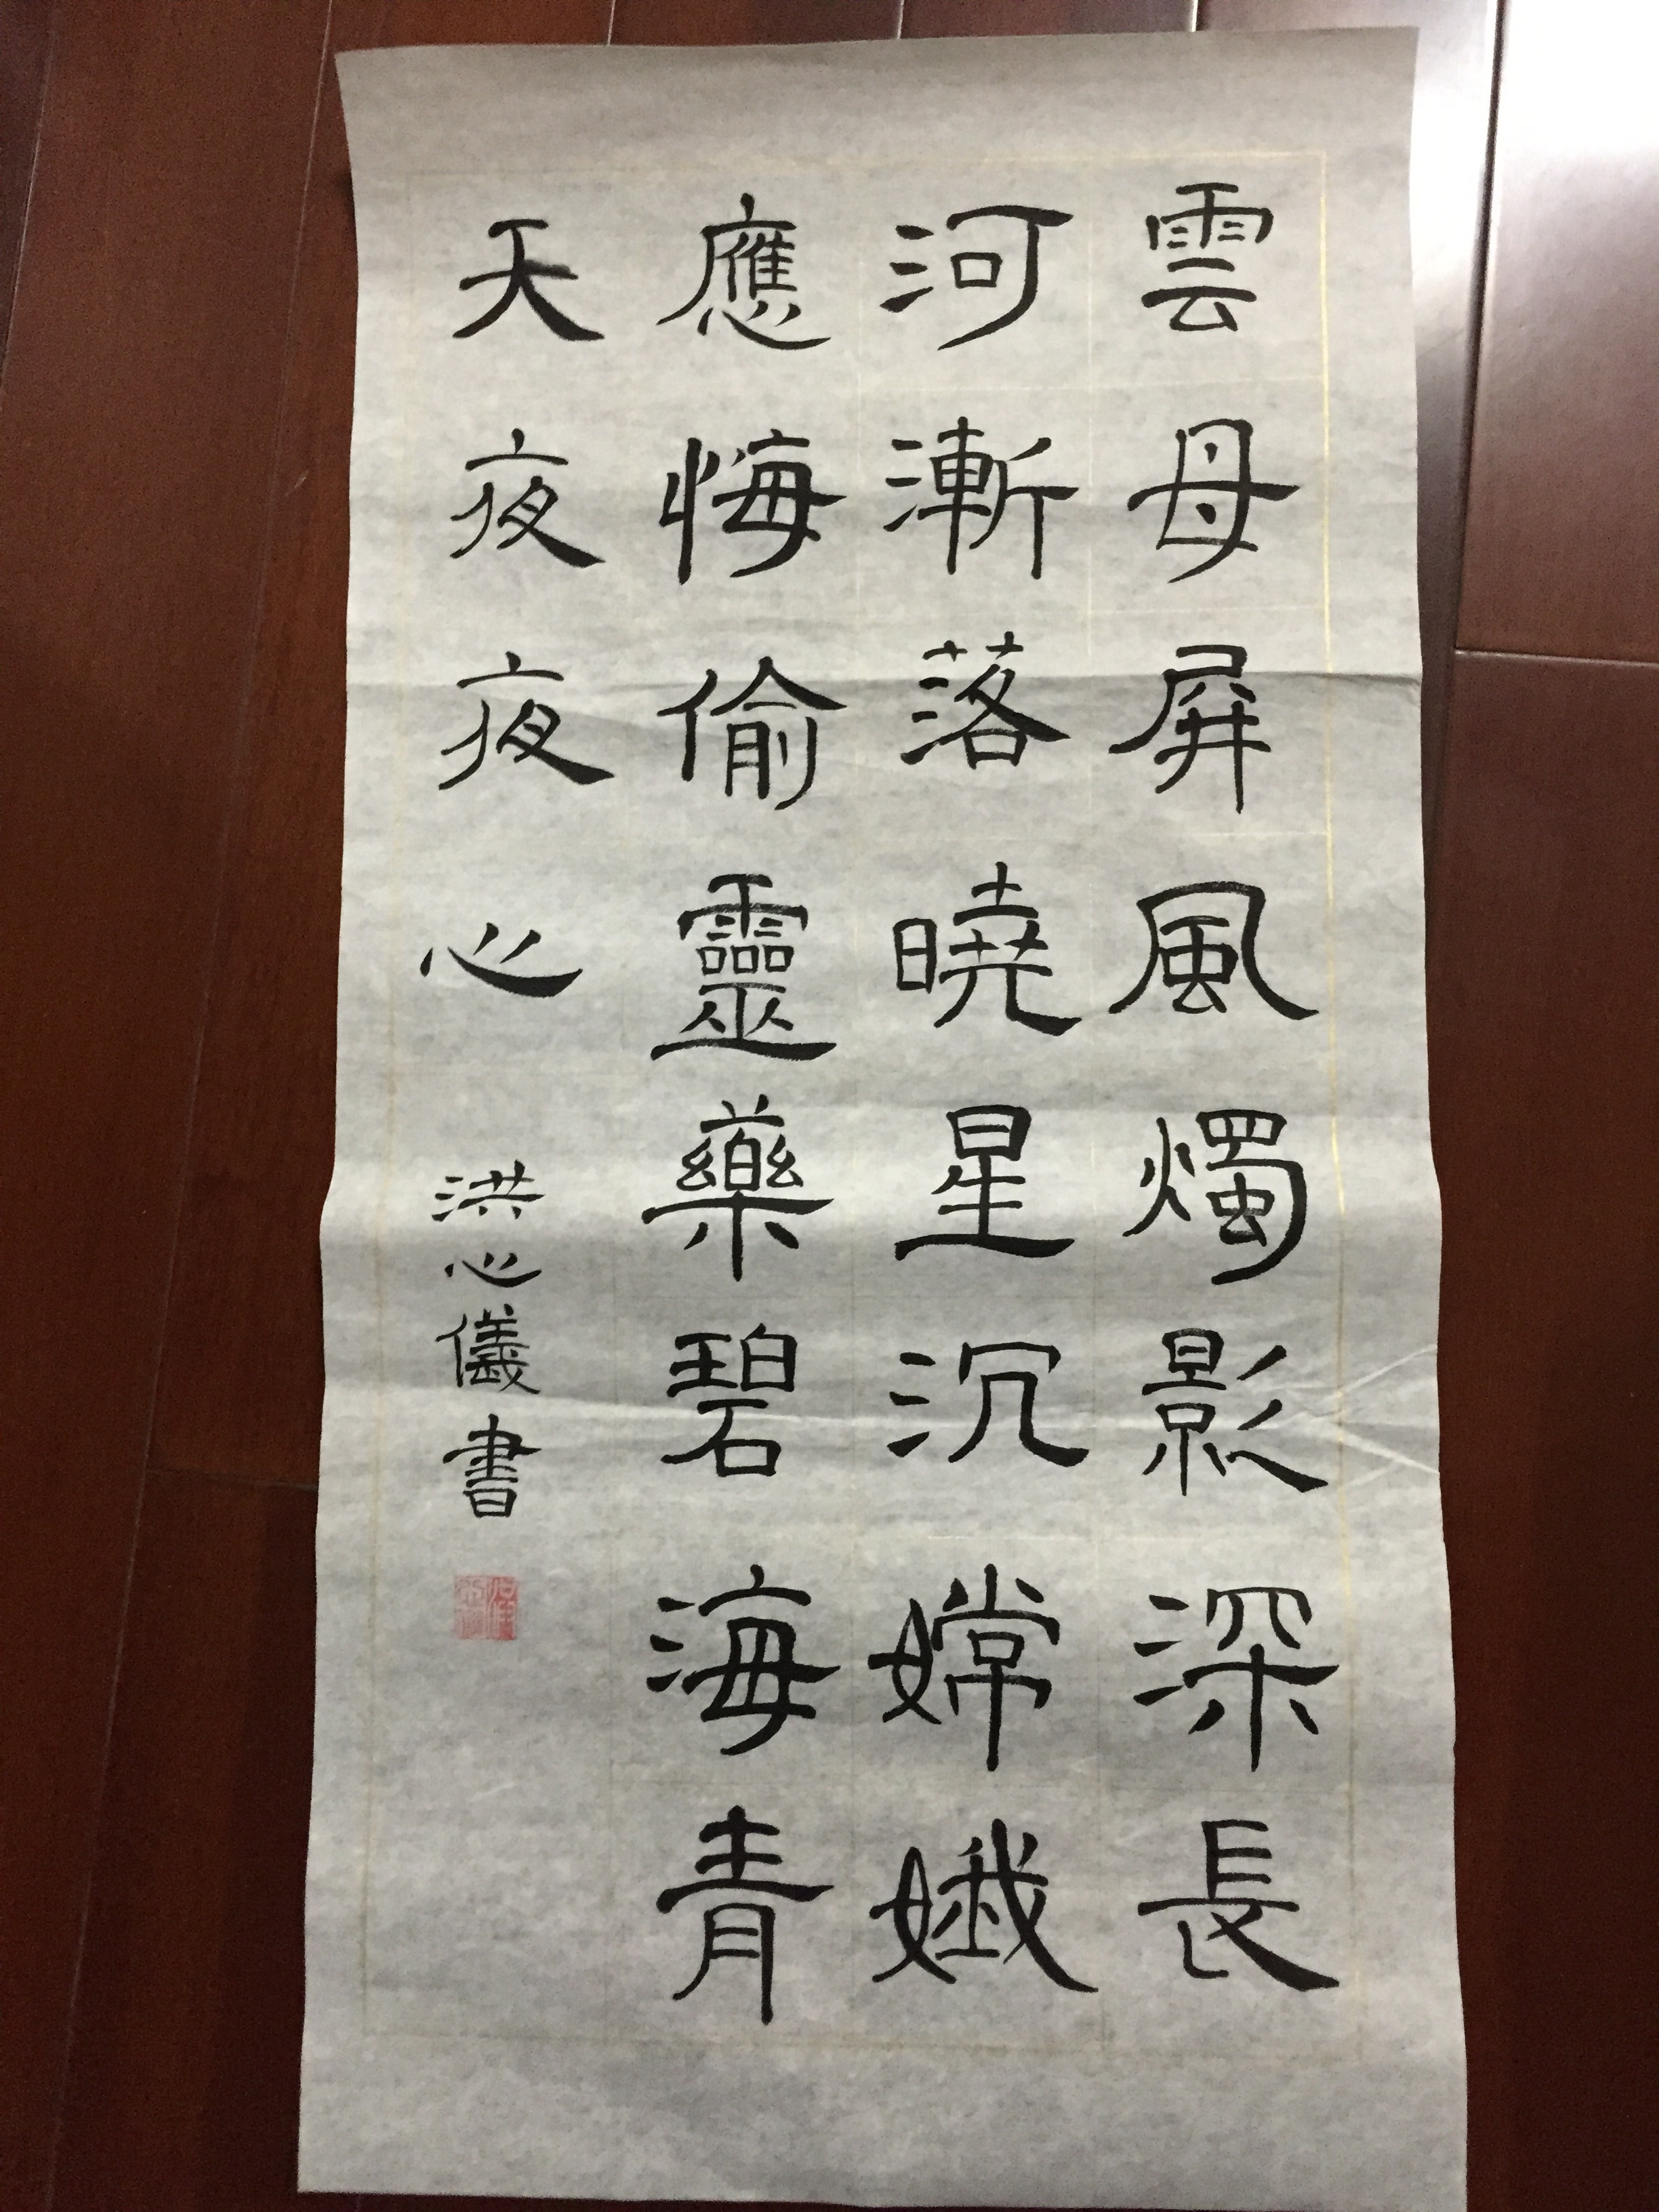 雲母屏風燭影深長
河漸落曉星沉嫦娥
應悔偷靈藥碧海青
天夜夜心
洪心儀書